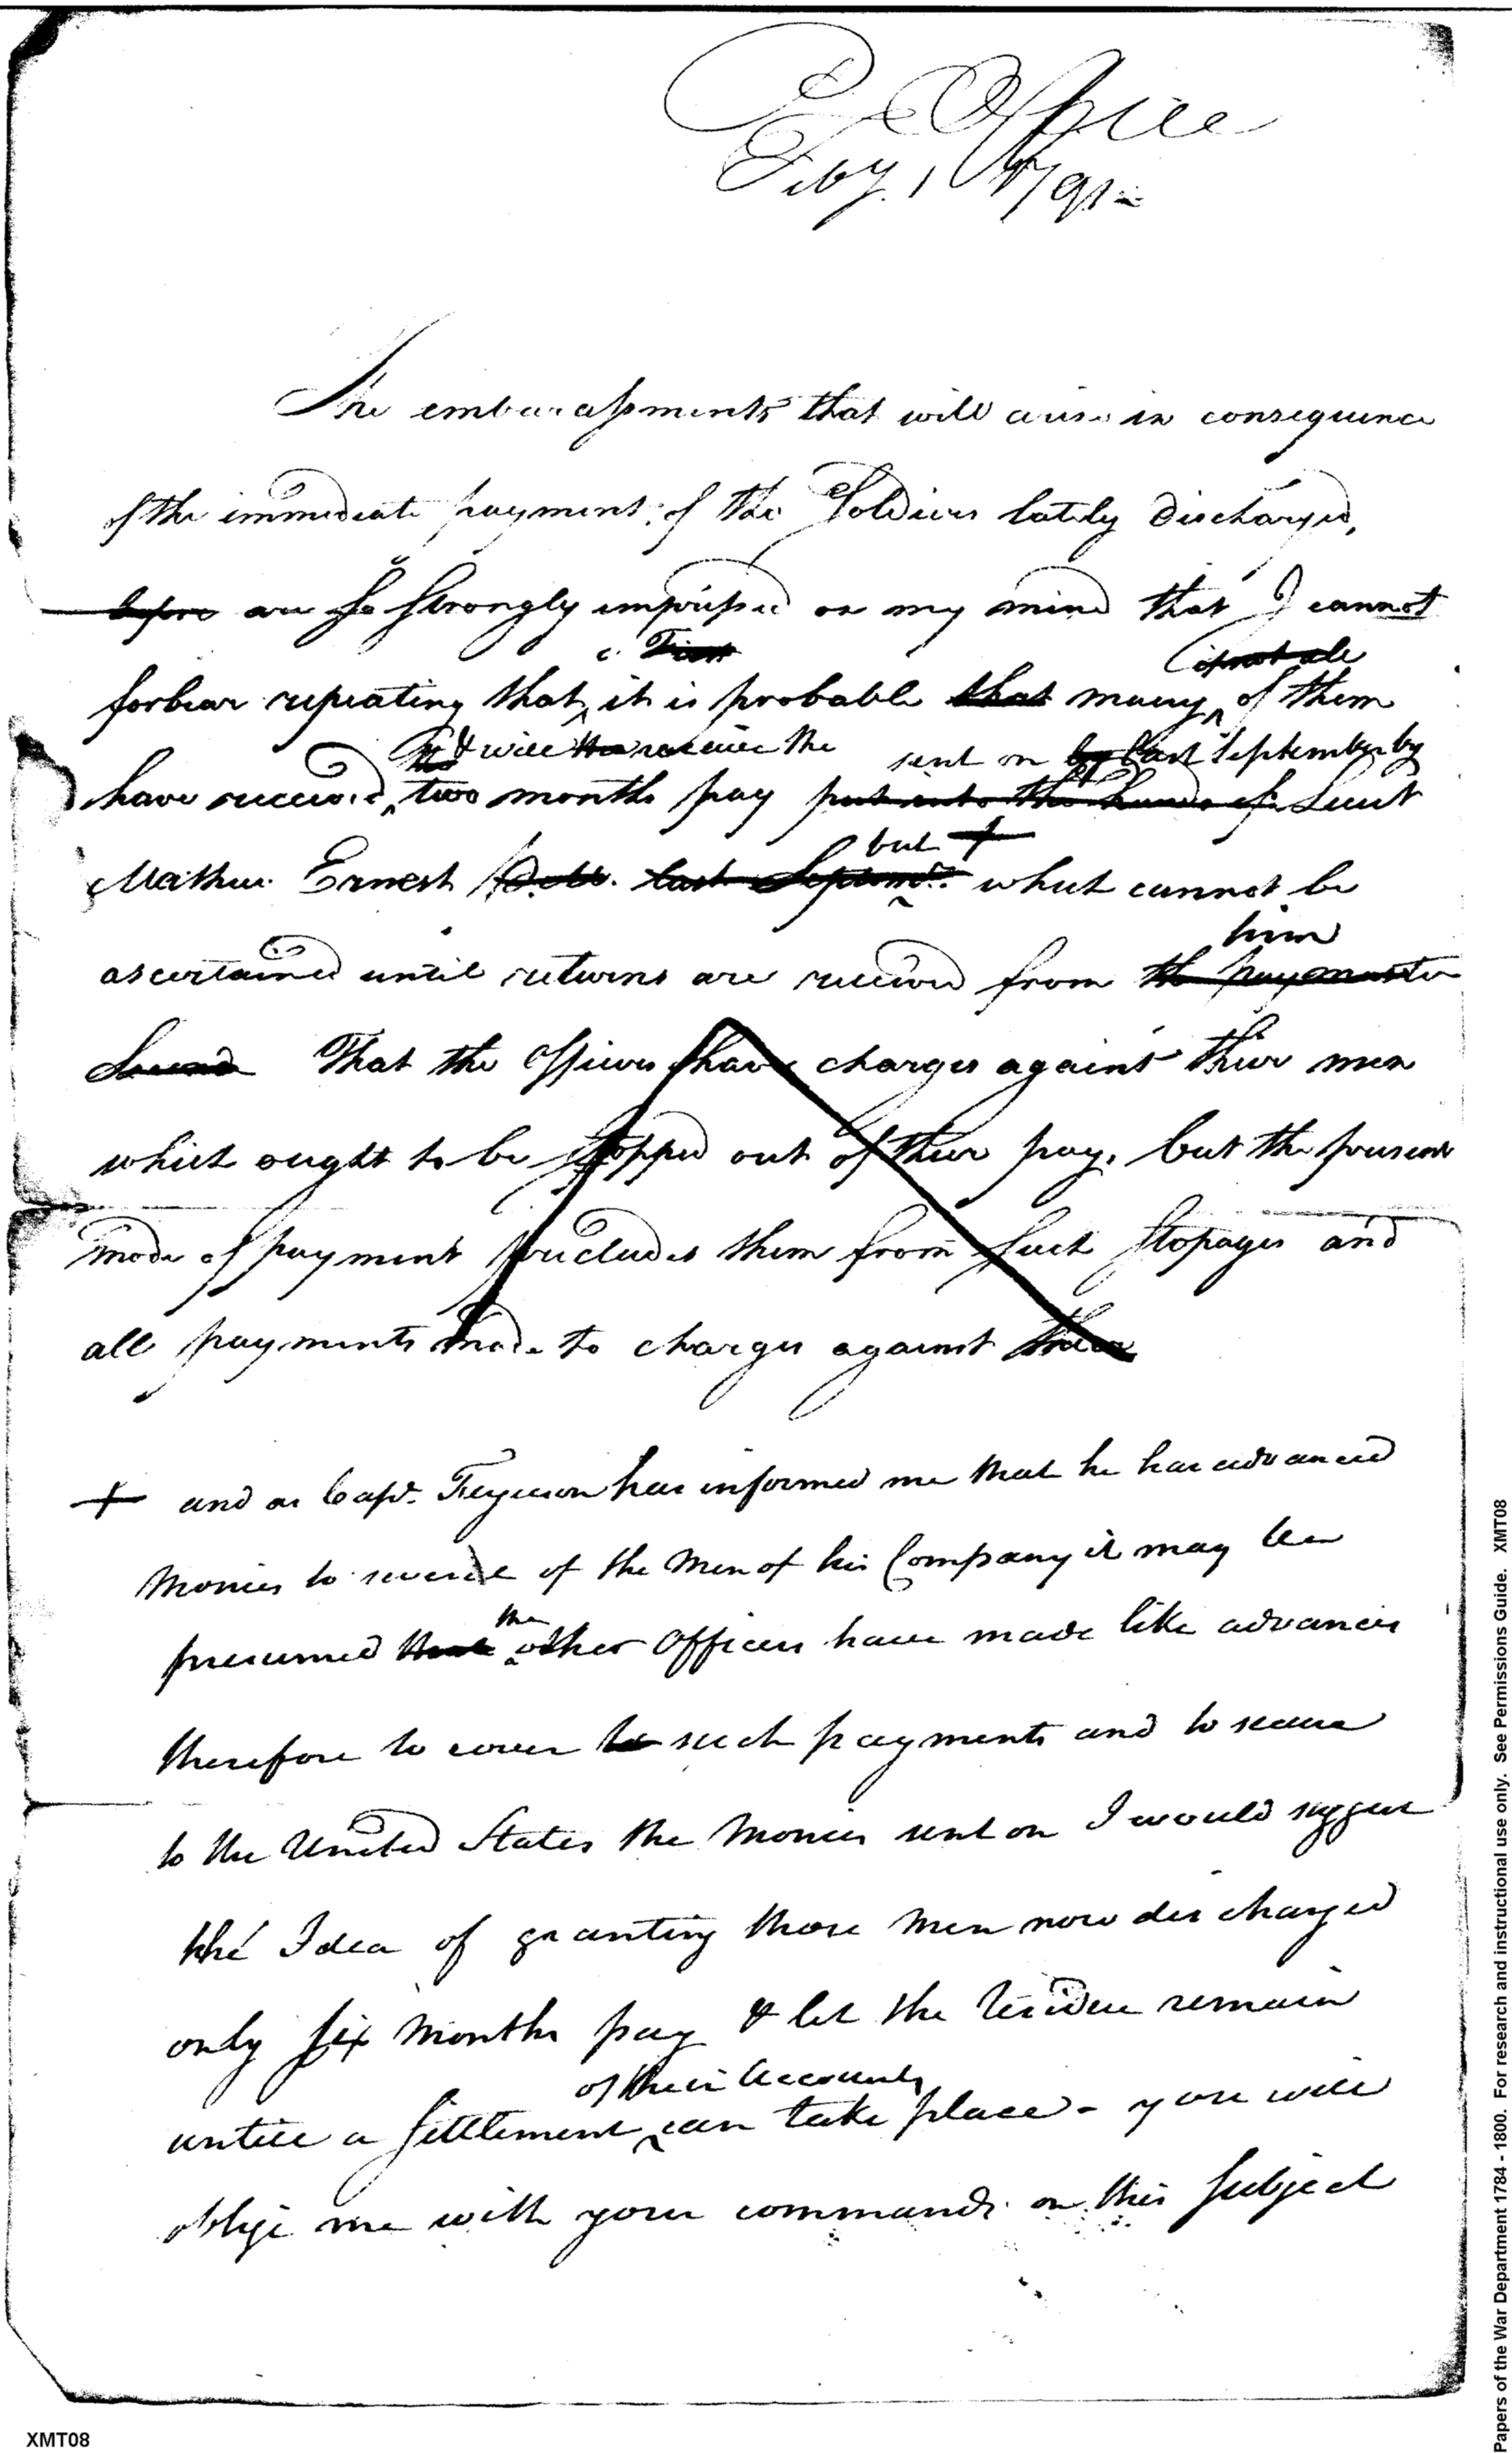 P. Office
Feby. 1 1791
The embarassments that will arise in consequence
of the immediate payment of the Soldiers lately discharged,
before are so strongly impressed on my mind that I cannot
First if not all
forbear repeating that it is probable that many of them
& will receive the sent on by Capt September by
have received two months pay put into the hands of Lieut
but +
Mathew Ernest last Septemr. what cannot be
him
ascertained until returns are received from the paymaster
Second That the Officers have charges against their men
which ought to be stopped out of their pay, but the present
mode of payment precludes them from such stopages and
all payments made to charges against them
+ and as Capt. Ferguson has informed me that he has advanced
Monies to several of the Men of his Company it may be
the
presumed that other Officers have made like advances
therefore to cover to such payments and to secure
to the United States the Monies sent on I would suggest
the Idea of granting those Men now discharged
only six Months pay & let the residue remain
of their Accounts
untill a settlement can take place - you will
oblige me with your commands on this subject
XMT08
Papers of the War Department 1784 - 1800. For research and instructional use only. See Permissions Guide. XMT08